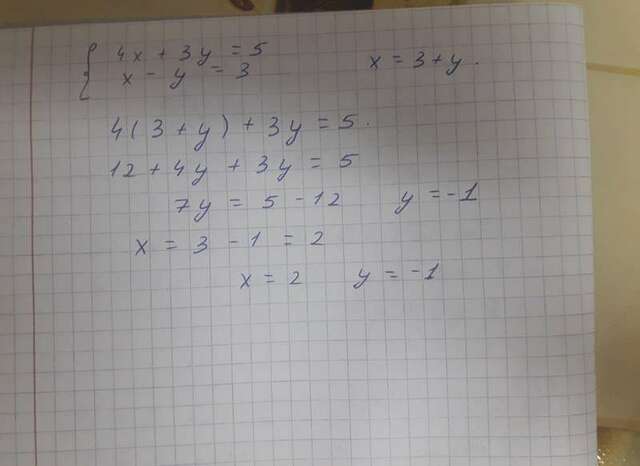 4x + 3y = 5
x - y = 3
x = 3 + y.
4(3 + y) + 3y = 5.
12 + 4y + 3y = 5
7y = 5 - 12 y = -1
x = 3 - 1 = 2
x = 2 y = -1